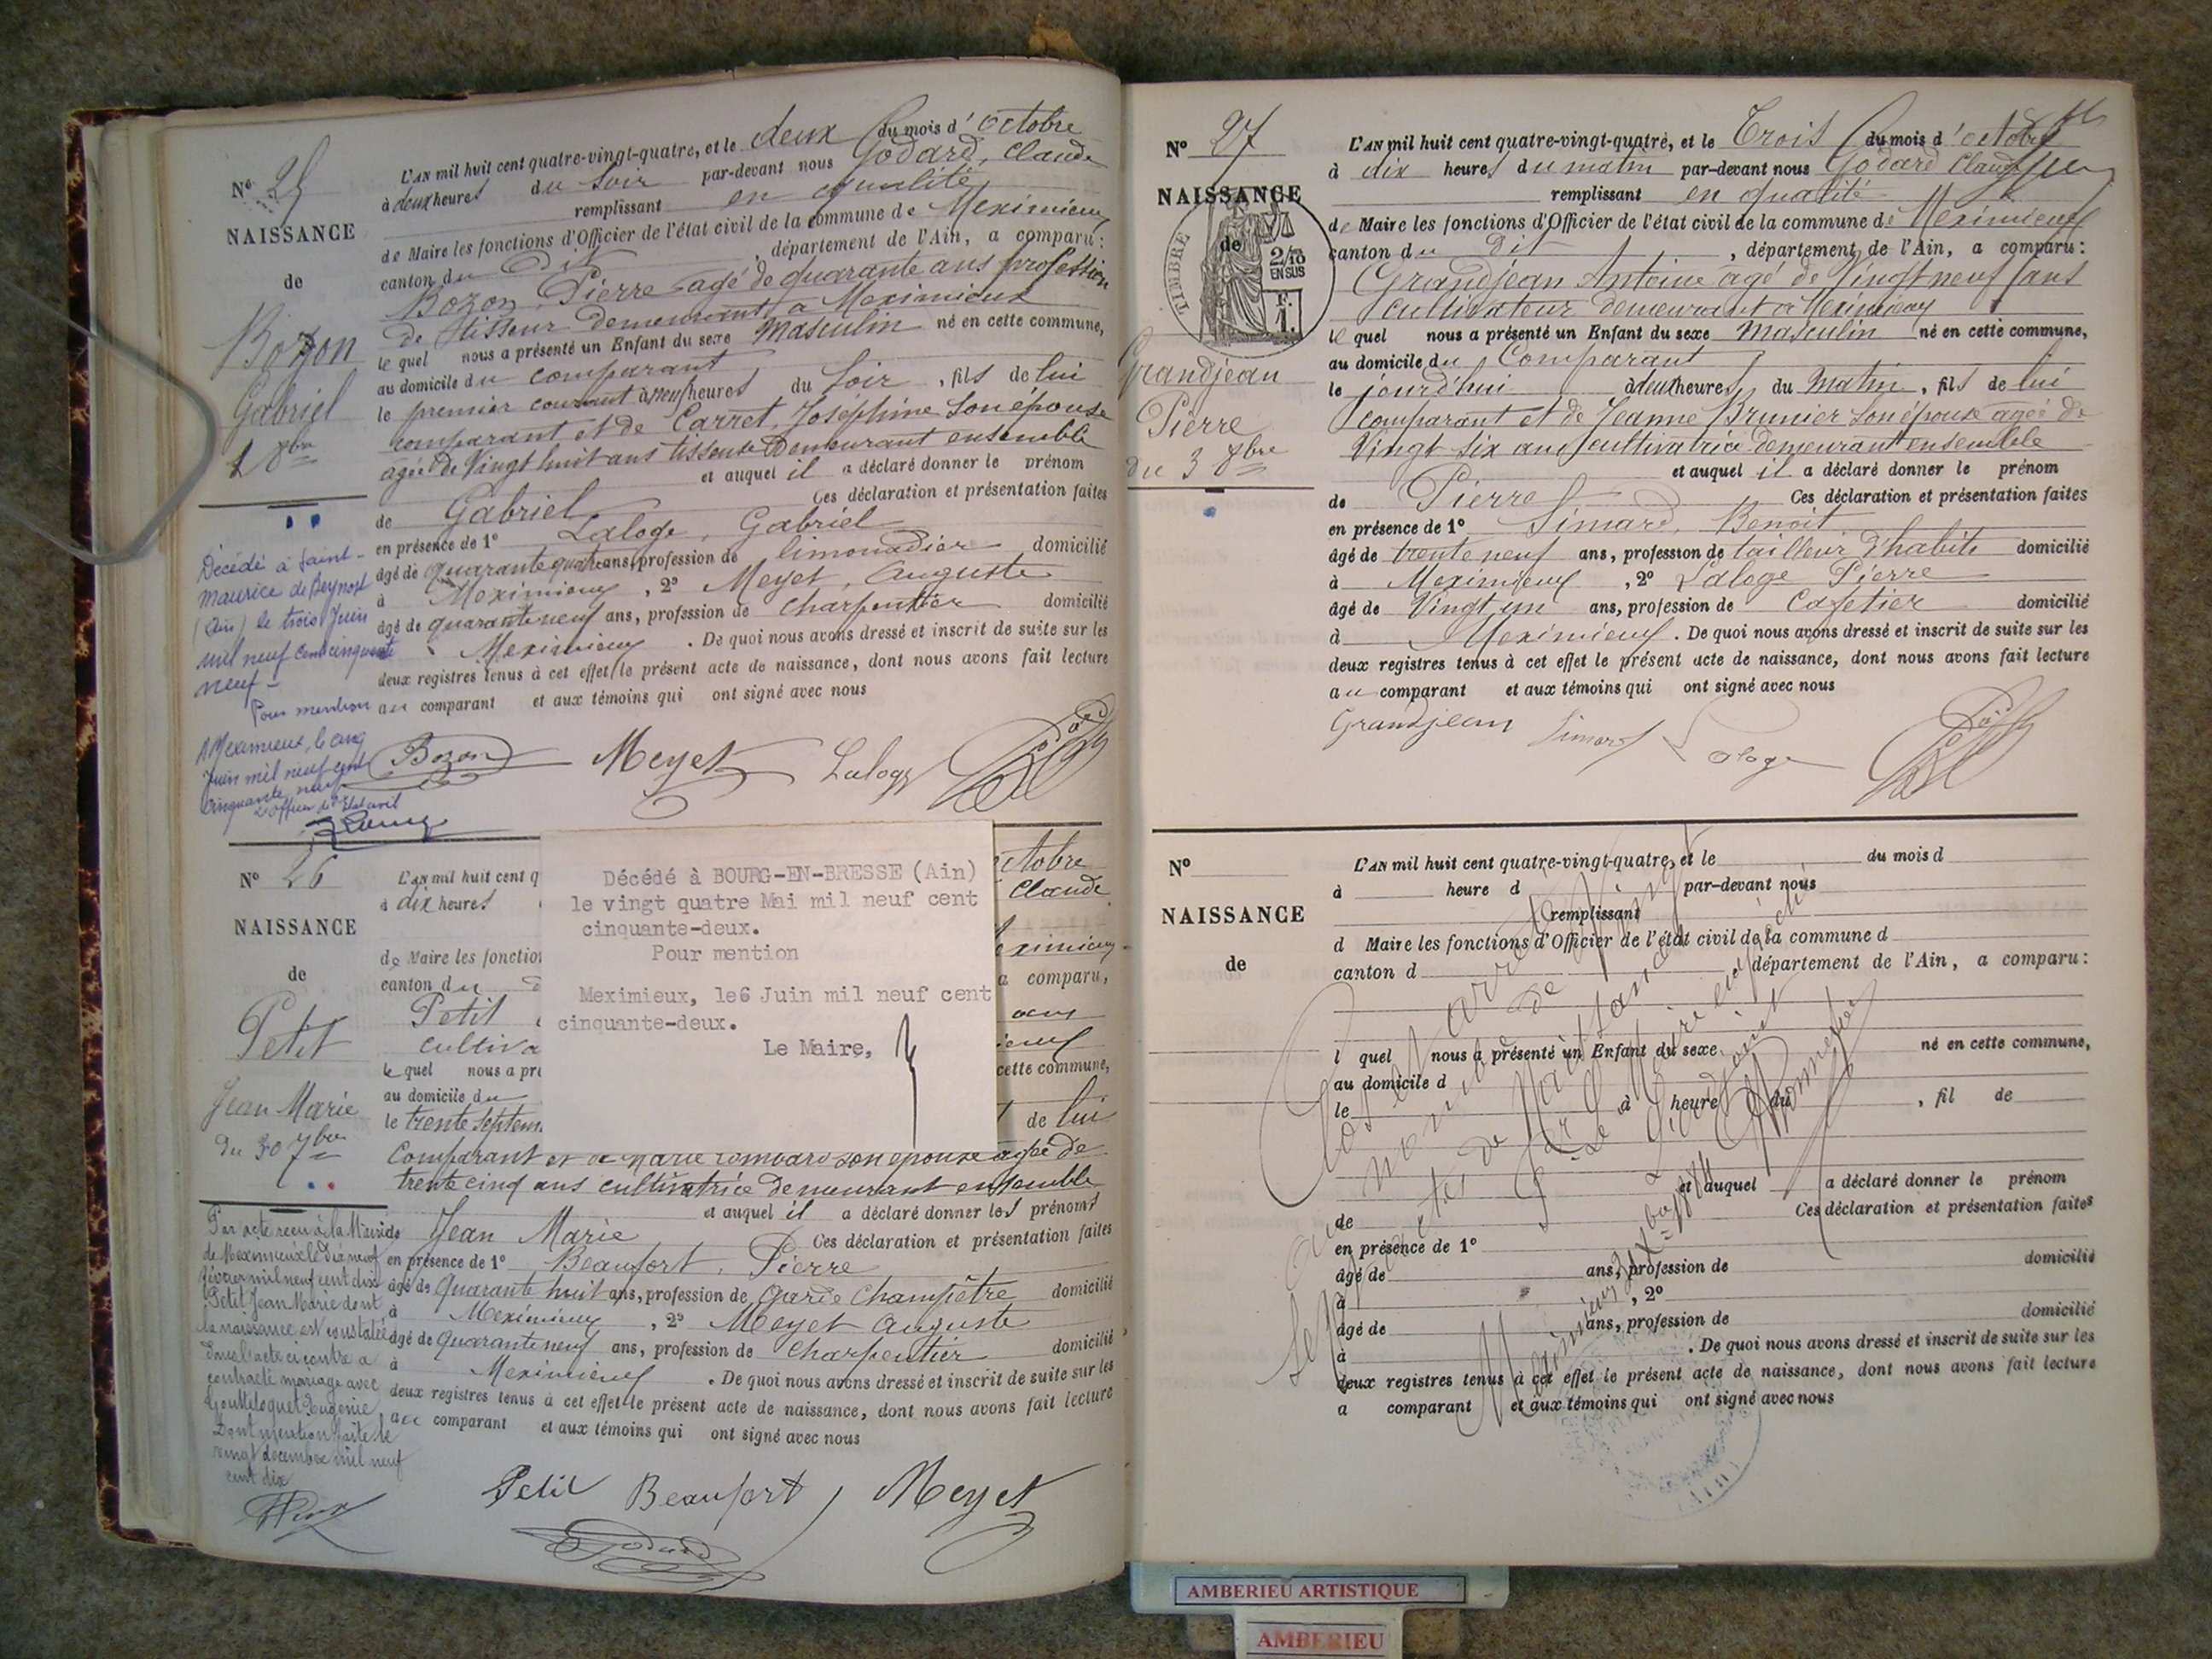 Nº 25
NAISSANCE
de
Bozon
Gabriel
1 8bre
L'AN mil huit cent quatre-vingt-quatre, et le deux du mois d'octobre
à deux heures du soir par-devant nous Godard, Claude
remplissant en qualité
de Maire les fonctions d'Officier de l'état civil de la commune de Meximieux
canton du dit, département de l'Ain, a comparu:
Bozon, Pierre agé de quarante ans profession
de tisseur demeurant à Meximieux
le quel nous a présenté un Enfant du sexe Masculin né en cette commune,
au domicile du comparant
le premier courant à neuf heures du soir, fils de lui
comparant et de Carret, Joséphine son épouse
agée de Vingt huit ans tisseuse Demeurant ensemble
et auquel il a déclaré donner le prénom
de Gabriel Ces déclaration et présentation faites
en présence de 1º Laloge, Gabriel
âgé de quarante quatre ans, profession de limonadier domicilié
à Meximieux, 2º Meyet, Auguste
âgé de quarante neuf ans, profession de Charpentier domicilié
à Meximieux. De quoi nous avons dressé et inscrit de suite sur les
deux registres tenus à cet effet le présent acte de naissance, dont nous avons fait lecture
au comparant et aux témoins qui ont signé avec nous
Bozon Meyet Laloge
Décédé à Saint-
Maurice de Beynost
(Ain) le trois Juin
mil neuf cent cinquante
neuf -
Pour mention
A Meximieux, le cinq
Juin mil neuf cent
cinquante neuf
L'Officier de l'Etat civil
Nº 26
NAISSANCE
de
Petit
Jean Marie
du 30 7bre
L'AN mil huit cent q
à dix heures
de Maire les fonction
canton du
Petit
cultiva
le quel nous a pré
au domicile du
le trente septem
Décédé à BOURG-EN-BRESSE (Ain)
le vingt quatre Mai mil neuf cent
cinquante-deux.
Pour mention
Meximieux, le6 Juin mil neuf cent
cinquante-deux.
Le Maire,
ctobre
Claude
eximieux
a comparu,
ans
ieux
cette commune,
de lui
Comparant et de Marie son épouse agée de
trente cinq ans cultivatrice demeurant ensemble
et auquel il a déclaré donner les prénoms
de Jean Marie Ces déclaration et présentation faites
en présence de 1º Beaufort, Pierre
âgé de Quarante huit ans, profession de Garde Champêtre domicilié
à Meximieux, 2º Meyet Auguste
âgé de quarante neuf ans, profession de Charpentier domicilié
à Meximieux. De quoi nous avons dressé et inscrit de suite sur les
deux registres tenus à cet effet le présent acte de naissance, dont nous avons fait lecture
au comparant et aux témoins qui ont signé avec nous
Petit Beaufort Meyet
Godard
Par acte reçu à la Mairie
de Meximieux le dix neuf
février mil neuf cent dix
Petit Jean Marie dont
la naissance est constatée
dans l'acte ci contre a
contracté mariage avec
Eugénie
Dont mention faite le
vingt décembre mil neuf
cent dix
Nº 27
NAISSANCE
de
TIMBRE
2/10
EN SUS
F.
1.
Grandjean
Pierre
du 3 8bre
L'AN mil huit cent quatre-vingt-quatre, et le Trois du mois d'octobre
à dix heures du matin par-devant nous Godard Claude
remplissant en qualité
de Maire les fonctions d'Officier de l'état civil de la commune de Meximieux
canton du dit, département de l'Ain, a comparu:
Grandjean Antoine agé de Vingt neuf ans
Cultivateur demeurant à Meximieux
le quel nous a présenté un Enfant du sexe Masculin né en cette commune,
au domicile du Comparant
le jourd'hui à deux heures du Matin, fils de lui
comparant et de Jeanne Brunier son épouse agée de
Vingt six ans cultivatrice demeurant ensemble
et auquel il a déclaré donner le prénom
de Pierre Ces déclaration et présentation faites
en présence de 1º Simard, Benoit
âgé de trente neuf ans, profession de tailleur d'habits domicilié
à Meximieux, 2º Laloge Pierre
âgé de Vingt un ans, profession de Cafetier domicilié
à Meximieux. De quoi nous avons dressé et inscrit de suite sur les
deux registres tenus à cet effet le présent acte de naissance, dont nous avons fait lecture
au comparant et aux témoins qui ont signé avec nous
Grandjean Simard Laloge
Nº
NAISSANCE
de
L'AN mil huit cent quatre-vingt-quatre, et le du mois d
à heure d par-devant nous
remplissant
d Maire les fonctions d'Officier de l'état civil de la commune d
canton d département de l'Ain, a comparu:
l quel nous a présenté un Enfant du sexe né en cette commune,
au domicile d
le à heure du, fil de
et auquel a déclaré donner le prénom
de Ces déclaration et présentation faites
en présence de 1º
âgé de ans, profession de domicilié
à, 2º
âgé de ans, profession de domicilié
à. De quoi nous avons dressé et inscrit de suite sur les
deux registres tenus à cet effet le présent acte de naissance, dont nous avons fait lecture
a comparant et aux témoins qui ont signé avec nous
Clos et arrêté
au nombre de Vingt
sept actes de Naissance
Par le Maire
L'adjoint
Meximieux
AMBERIEU ARTISTIQUE
AMBERIEU